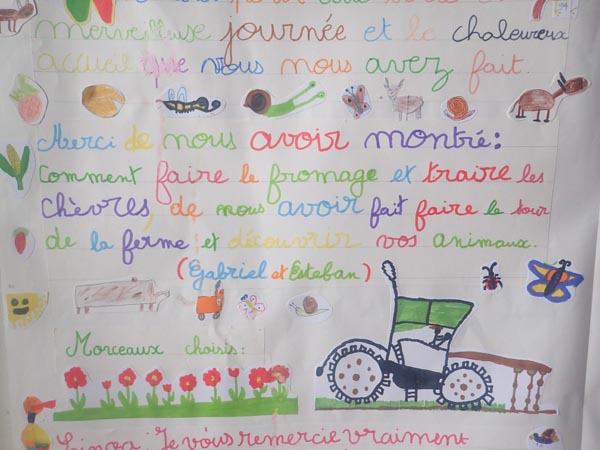 merveilleuse journée et le chaleureux
accueil que vous nous avez fait.
Merci de nous avoir montré:
Comment faire le fromage et traire les
chèvres, de nous avoir fait faire le tour
de la ferme et découvrir vos animaux.
(Gabriel et Esteban)
Morceaux choisis:
Je vous remercie vraiment